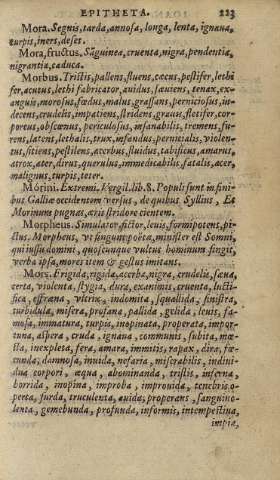 EPITHETA. 223
Mora. Segnis, tarda, annosa, longa, lenta, ignaua,
turpis, iners, deses.
Mora, fructus. Sāguinea, cruenta, nigra, pendentia,
nigrantia, caduca.
Morbus. Tristis, pallens, fluens, cæcus, pestifer, lethi
fer, acutus, lethi fabricator, auidus, sæuiens, tenax, ex-
anguis, morosus, fœdus, malus, grassans, perniciosus, in-
decens, crudelis, impatiens, stridens, grauis, fletifer, cor-
poreus, obscœnus, periculosus, insanabilis, tremens, fu-
rens, latens, lethalis, trux, infandus, pernicialis, violen-
tus, sitiens, pestilens, acerbus, fluidus, tabificus, amarus,
atrox, ater, dirus, querulus, immedicabilis, fatalis, acer,
malignus, turpis, teter.
Mórini. Extremi. Vergil. lib. 8. Populi sunt in fini-
bus Galliæ occidentem versus, de quibus Syllius, Et
Morinum pugnas, æris stridore cientem.
Morpheus. Simulator, fictor, leuis, formipotens, pi-
ctus. Morpheus, vt fingunt poetæ, minister est Somni,
qui iussu domini, quoscunque vultus hominum fingit,
verba ipsa, mores item & gestus imitans.
Mors. Frigida, rigida, acerba, nigra, crudelis, sæua,
certa, violenta, stygia, dura, exanimis, cruenta, lucti-
fica, effrana, victrix, indomita, squallida, sinistra,
turbidula, misera, profana, pallida, gelida, leuis, fa-
mosa, immatura, turpis, inopinata, properata, impor-
tuna, aspera, cruda, ignana, communis, subita, mœ-
sta, inexpleta, fera, amara, immitis, rapax, dira, fa-
cunda, damnosa, inuida, nefaria, miserabilis, indiui-
dua corpori, æqua, abominanda, tristis, inferna,
horrida, inopina, improba, improuida, tenebris o-
perta, surda, truculenta, auida, properans, sanguino-
lenta, gemebunda, profunda, informis, intempestiua,
impia,